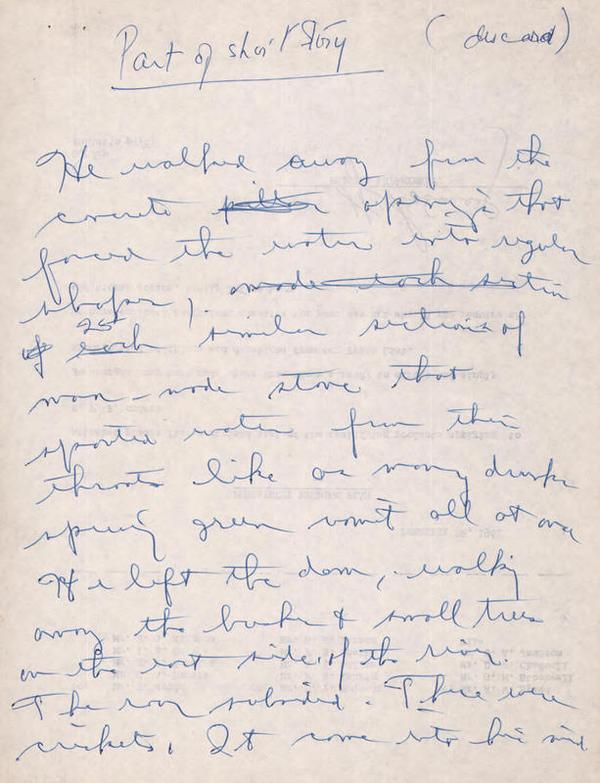 Part of short Story (discard)
He walked away from the
concrete openings that
forced the water into regular
shapes, made each section
of each similar sections of
man-made stone that
spouted water from their
throats like so many drunks
spewing green vomit all at once
He left the dam, walking
away the banks & small trees
on the west side of the river.
The roar subsided. There were
crickets. It came into his mind